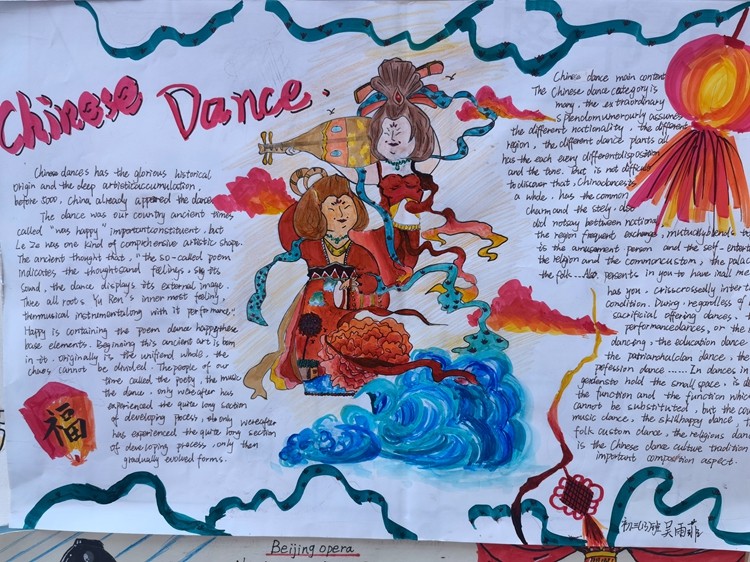 Chinese Dance.
Chinese dances has the glorious historical
origin and the deep artistic accumulation,
before 5000, China already appeared the dance.
The dance was our country ancient times
called "was happy" important constituent, but
Le Ze was one kind of comprehensive artistic shape.
The ancient thought that, "the so-called poem
indicates the thoughts and feelings, sing its
sound, the dance displays its external image.
Three all roots Yu Ren's inner most feeling,
the musical instrument along with it performance."
Happy is containing the poem dance happy these
base elements. Beginning this ancient art is born
in it. originally is the unified whole, the
chaos cannot be divided. The people of our
time called the poetry, the music,
the dance, only wereafter has
experienced the quite long section
of developing process, the only wereafter
has experienced the quite long section
of developing process, only then
gradually evolved forms.
Chinese dance main content
The Chinese dance category is
many, the extraordinary
splendom
the different nactionality, the different
region, the different dance plants all
has the each every different disposition
and the tone. But is not difficult
to discover that, Chinese
a whole, has the common
charm and the stely, also
did not say between nectional
the region frequent exchange, mutuctly blends
is the amusement person and the self-entert
the religion and the common custom, the palac
the folk...Also, persents in you to have
has you, crisscrossedly inter
condition. During regardless of
sacrificial offering dances,
performance dances, or the
dancing, the education dance
the patriarhalclan dance, the
pofession dance ...... In dances
to hold the small space, is a
the function and the function which
cannot be substituted, but the
music dance, the skihappy dance,
folk custom dance, the religious dan
is the Chinese dance culture tradition
important composition aspect.
福
初三(13)班 吴雨菲
Beijing opera